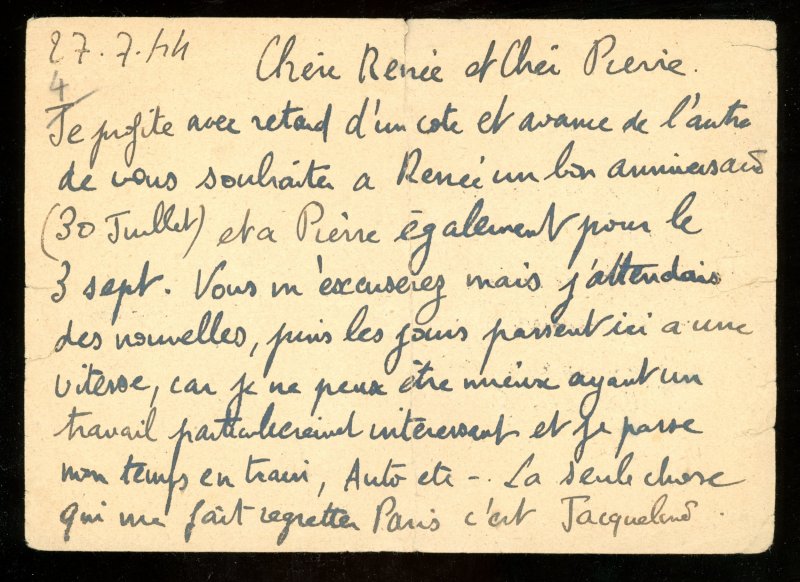 27.7.44
4
Chère Renée et Cher Pierre.
Je profite avec retard d'un cote et avance de l'autre
de vous souhaiter a Renée un bon anniversaire
(30 Juillet) et a Pierre également pour le
3 sept. Vous m'excuserez mais j'attendais
des nouvelles, puis les jours passent ici a une
vitesse, car je ne peux être mieux ayant un
travail particulierement interessant et je passe
mon temps en train, Auto etc -. La seule chose
qui me fait regretter Paris c'est Jacqueline.